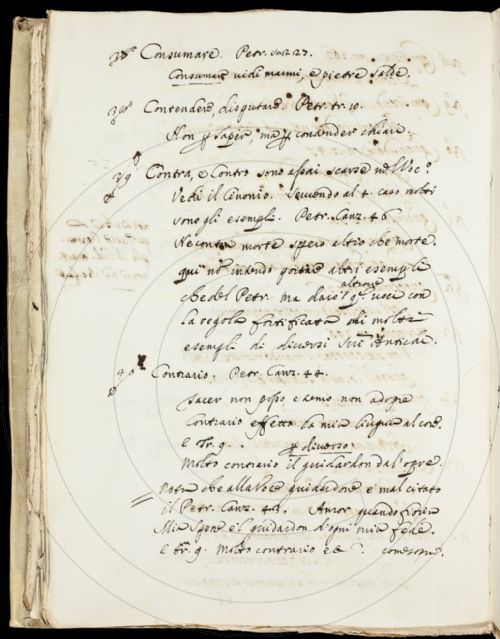 38° Consumare. Petr. son. 27.
Consumar vidi marmi, e pietre salde.
30° Contendere, disputare. Petr. tr. 10.
Non p saper, ma p contender chiari,
39 Contra, e Contro sono assai scarse nel Voc.°
Vedi il Cinonio. Servendo al 4. caso molti
sono gli esempli. Petr. Canz. 46
Ne contra morte spero altro che morte.
qui nō intendo portare altri esempli
che del Petr. ma darò altrove voci con
la regola fortificata di molti
esempli di diversi Scrit. Antichi.
40 Contrario. Petr. Canz. 44.
tacer non posso e temo non adopre
Contrario effetto la mia lingua al core.
e Tr. 9. p diverso.
Molto contrario il guidardon dal' opre.
nota che alla voce guidardone e mal citato
il Petr. Canz. 48. Amor quando fioria
Mia Spene e 'l guidardon d'ogni mia fede.
e tr. 9. Molto contrario